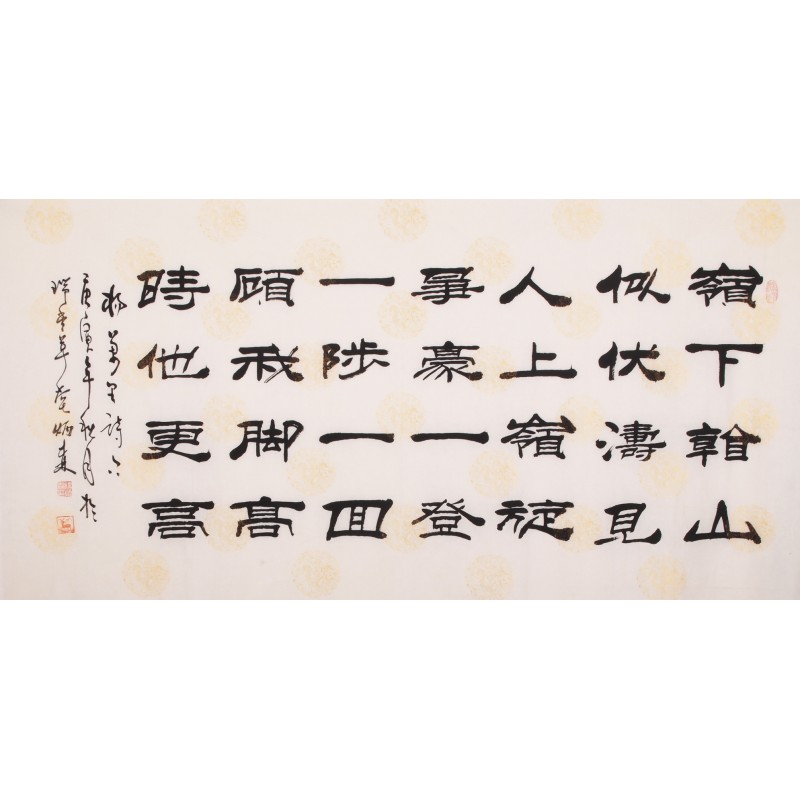 嶺下看山
似伏濤見
人上嶺旋
爭豪一登
一陟一回
顧我脚高
時他更高
楊萬里詩
庚寅年秋月於
草堂炳森